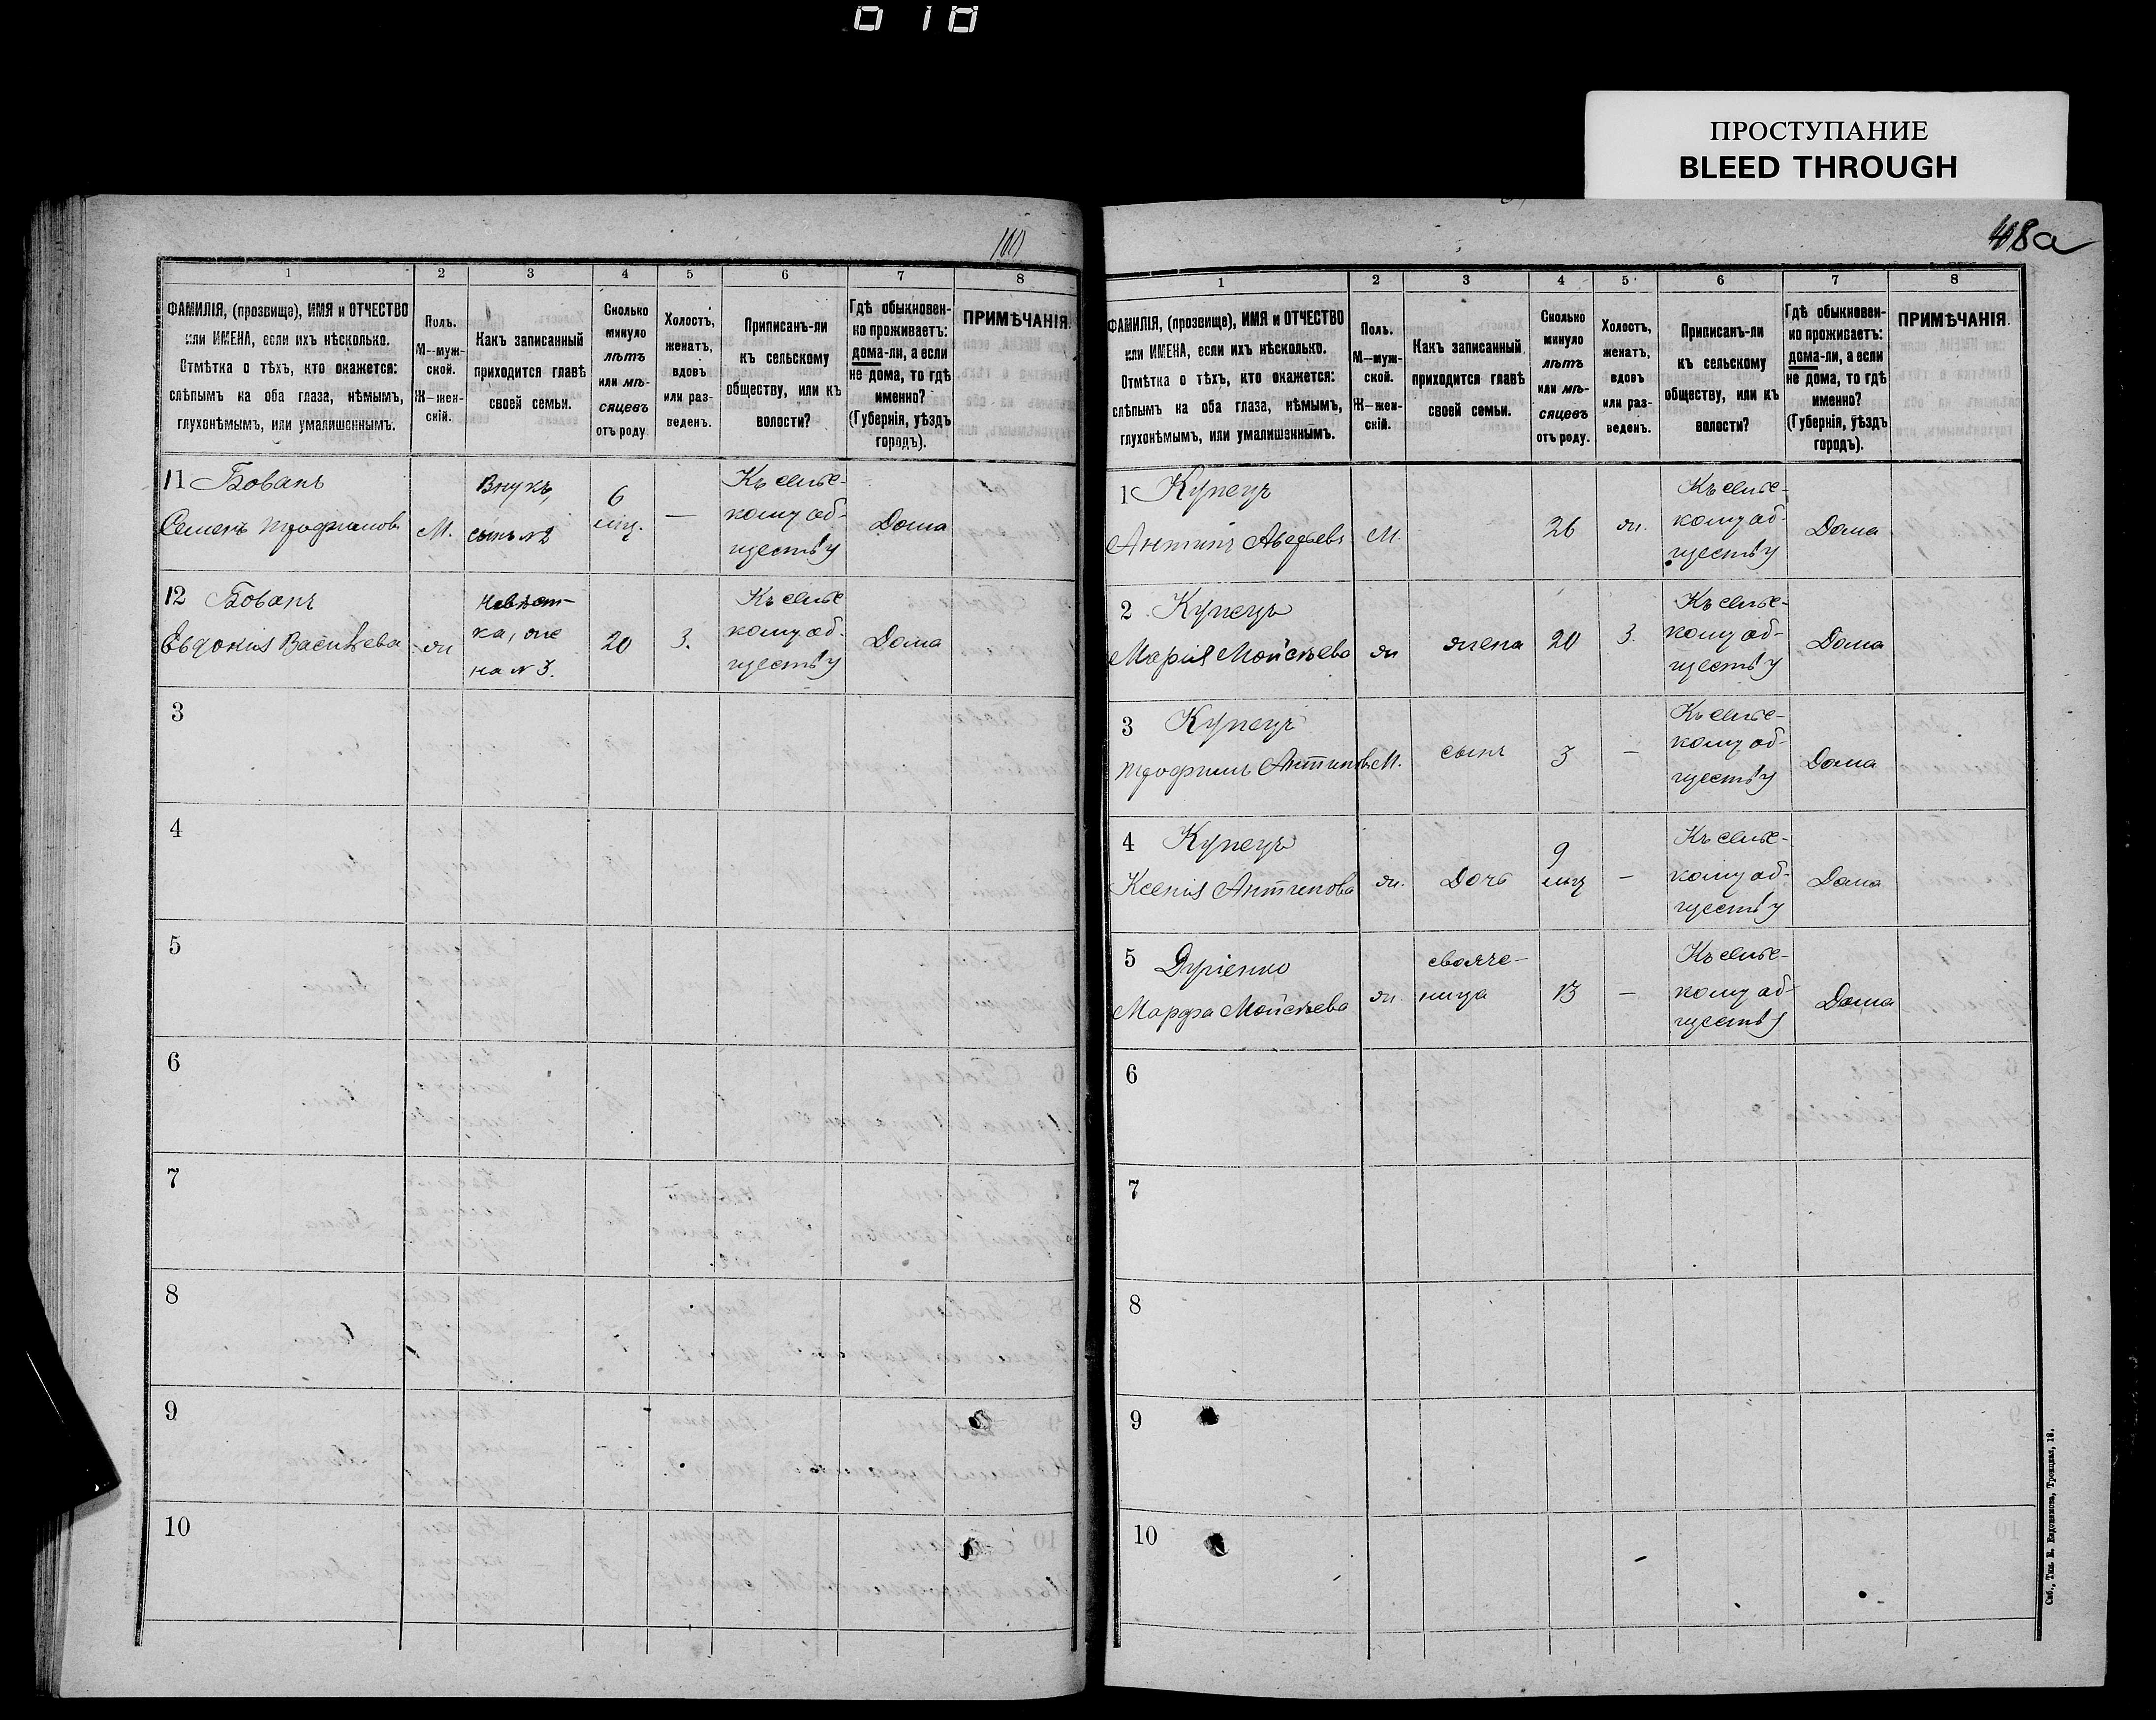 ПРОСТУПАНИЕ
BLEED THROUGH
48а
1 2 3 4 5 6 7 8
ФАМИЛІЯ, (прозвище), ИМЯ и ОТЧЕСТВО
или ИМЕНА, если ихъ нѣсколько.
Отмѣтка о тѣхъ, кто окажется:
слѣпымъ на оба глаза, нѣмымъ,
глухонѣмымъ, или умалишеннымъ.
Полъ.
М—муж-
ской.
Ж—жен-
скій.
Какъ записанный
приходится главѣ
своей семьи.
Сколько
минуло
лѣтъ
или мѣ-
сяцевъ
отъ роду.
Холостъ,
женатъ,
вдовъ
или раз-
веденъ.
Приписанъ-ли
къ сельскому
обществу, или къ
волости?
Гдѣ обыкновен-
но проживаетъ:
дома-ли, а если
не дома, то гдѣ
именно?
(Губернія, уѣздъ
городъ).
ПРИМѢЧАНІЯ.
11 Бованъ
Семенъ Трофимовъ
М.
Внукъ,
сынъ №2
6
мѣц.
—
Къ сельс-
кому об-
ществу
Дома
12 Бованъ
Евдокия Васильева
ж
Невѣст-
ка, же
на № 3.
20
З.
Къ сельс
кому об-
ществу
Дома
3
4
5
6
7
8
9
10
1 2 3 4 5 6 7 8
ФАМИЛІЯ, (прозвище), ИМЯ и ОТЧЕСТВО
или ИМЕНА, если ихъ нѣсколько.
Отмѣтка о тѣхъ, кто окажется:
слѣпымъ на оба глаза, нѣмымъ,
глухонѣмымъ, или умалишеннымъ.
Полъ.
М—муж-
ской.
Ж—жен-
скій.
Какъ записанный
приходится главѣ
своей семьи.
Сколько
минуло
лѣтъ
или мѣ-
сяцевъ
отъ роду.
Холостъ,
женатъ,
вдовъ
или раз-
веденъ.
Приписанъ-ли
къ сельскому
обществу, или къ
волости?
Гдѣ обыкновен-
но проживаетъ:
дома-ли, а если
не дома, то гдѣ
именно?
(Губернія, уѣздъ
городъ).
ПРИМѢЧАНІЯ.
1 Купецъ
Антипъ Авдѣевъ
М.
26
ж.
Къ сельс-
кому об-
ществу
Дома
2 Купецъ
Мария Мойсѣева
ж
жена
20
З.
Къ сельс-
кому об-
ществу
Дома
3 Купецъ
Трофимъ Антиповъ
М.
сынъ
3
—
Къ сельс-
кому об-
ществу
Дома
4 Купецъ
Ксения Антипова
ж.
Дочь
9
мѣц
—
Къ сельс-
кому об-
ществу
Дома
5
Марфа Мойсѣева
ж.
своячe-
ница
13
—
Къ сельс-
кому об-
ществу
Дома
6
7
8
9
10
Спб., Тип. Е. Евдокимова, Троицкая, 18.